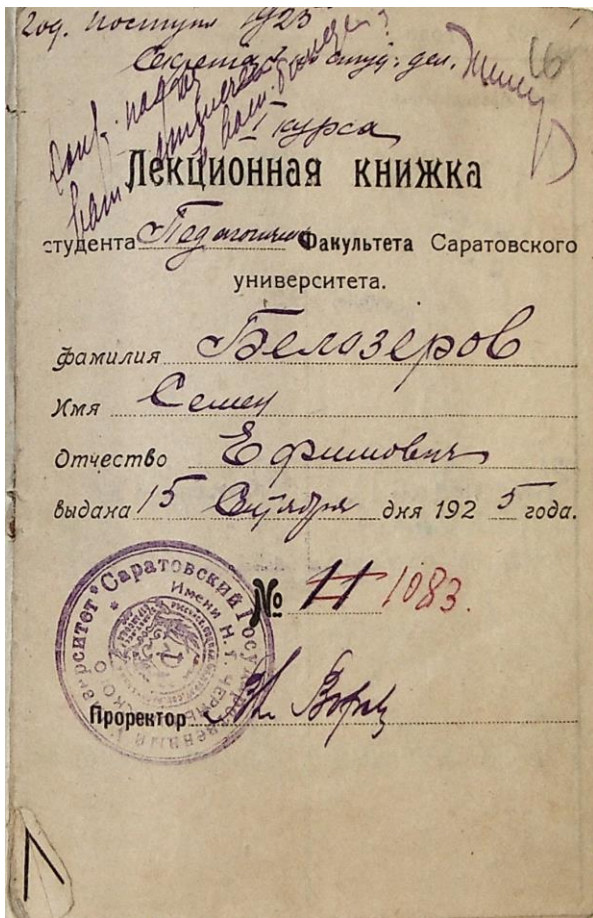 Год. поступл 1923
Секретарь студ. дел.
16
I курса
Лекционная книжка
студента Педагогическ Факультета Саратовского
университета.
фамилия Белозеров
Имя Семен
Отчество Ефимович
выдана 15 Октября дня 1925 года.
№ 11 1083.
Саратовский Государственный Университет
Имени Н.Г. Чернышевского
Проректор